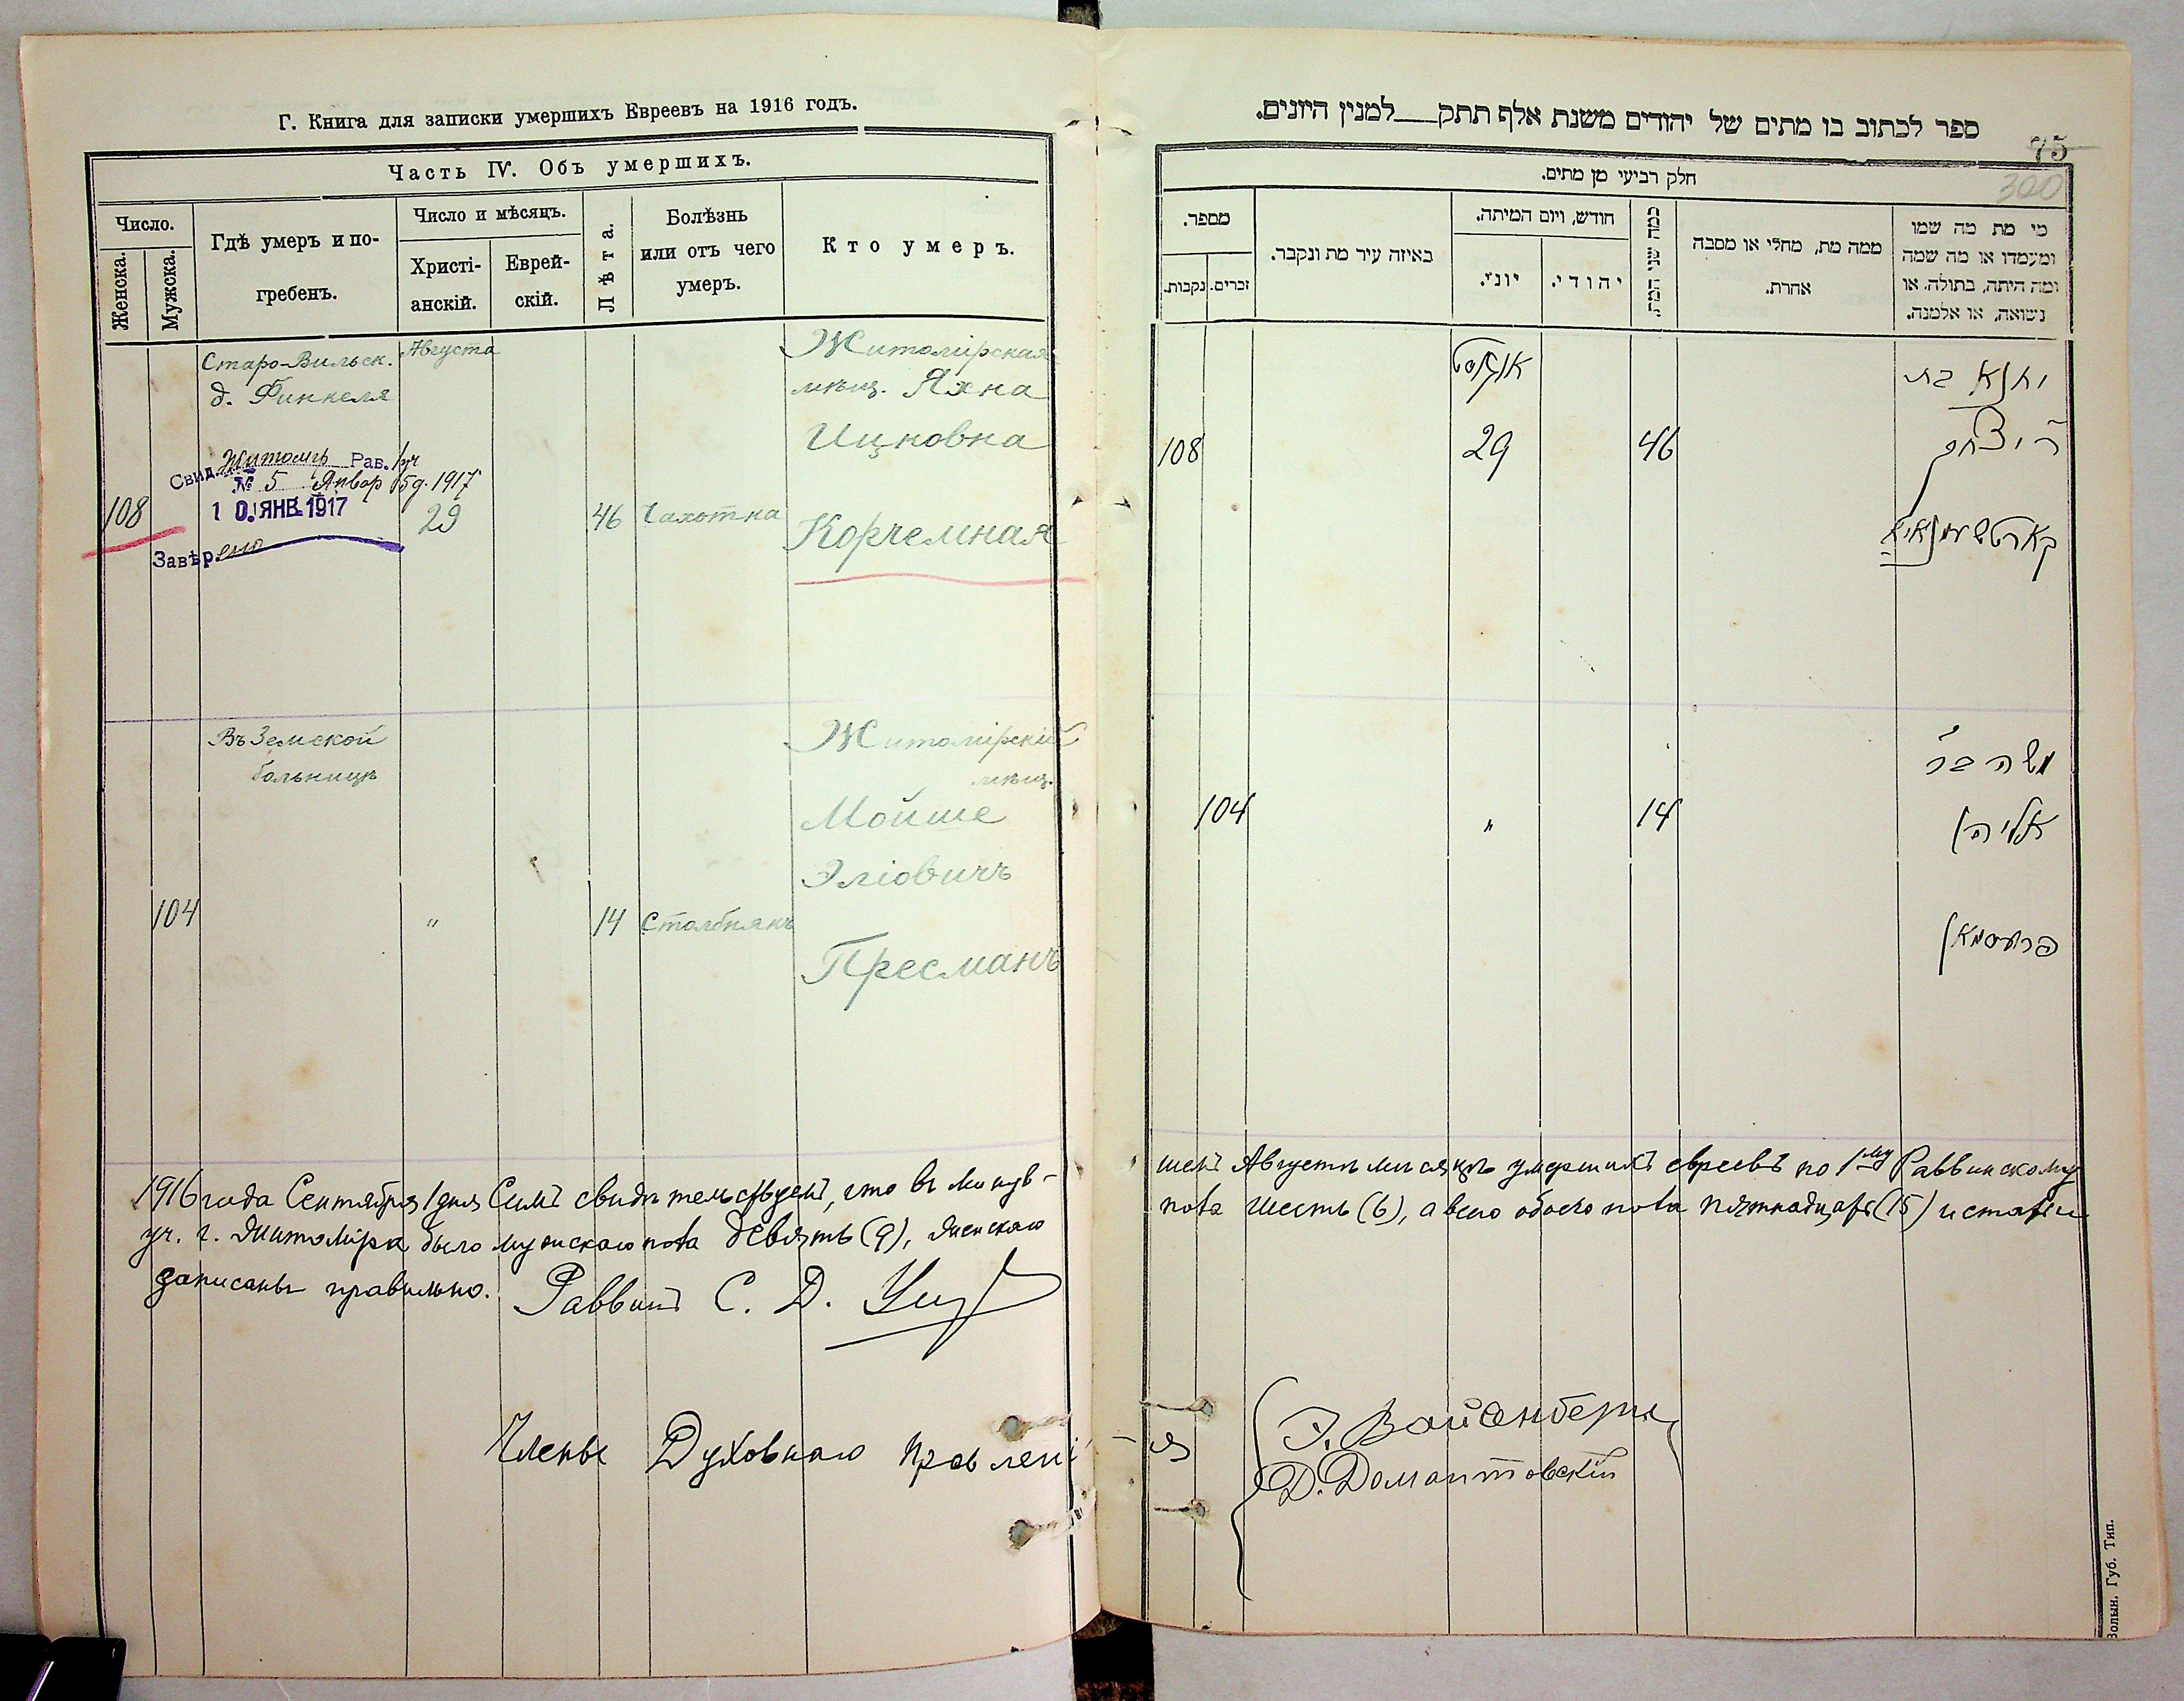 Г. Книга для записки умершихъ Евреевъ на 1916 годъ.
Часть IV. Объ умершихъ.
Число.
Женска.
Мужска.
Гдѣ умеръ и по-
гребенъ.
Число и мѣсяцъ.
Христі-
анскій.
Еврей-
скій.
Лѣта.
Болѣзнь
или отъ чего
умеръ.
Кто умеръ.
Старо-Вильск.
д. Финкеля
Августа
Житомірская
мѣщ. Яхна
Ицковна
Корчемная
Свид. Житомъ Рав. 1 уч
№ 5 Январ 5 д. 1917
10 ЯНВ 1917
Завѣрено
108
29
46
Чахотка
Въ Земской
больницѣ
Житомірскій
мѣщ.
Мойше
Эліовичъ
Пресманъ
104
"
14
Столбнякъ
1916 года Сентября 1 дня Симъ свидѣтельствуемъ, что въ минув-
уч. г. Житоміра было мужскаго пола девять (9), женскаго
записаны правильно. Раввинъ С. Д.
Члены Духовнаго Правлені
ספר לכתוב בו מתים של יהודים משנת אלף תתק___למנין היונים.
75
300
חלק רביעי מן מתים.
מספר.
נקבות.
זכרים.
באיזה עיר מת ונקבר.
חודש, ויום המיתה.
יוני.
יהודי.
כמה שני המת.
ממה מת, מחלי או מסבה
אחרת.
מי מת מה שמו
ומעמדו או מה שמה
ומה היתה, בתולה, או
נשואה, או אלמנה.
אוגוסט
יאכנא בת
ר' יצחק
קארטשעמנאיא
108
29
46
משה בר'
אליהו
פרעסמאן
104
"
14
шемъ Августѣ мѣсяцѣ умершихъ евреевъ по 1му Раввинскому
пола шесть (6), а всего обоего пола пятнадцать (15) и статьи
я
Э. Вайсенбергъ
Д. Домантовскій
Волын. Губ. Тип.